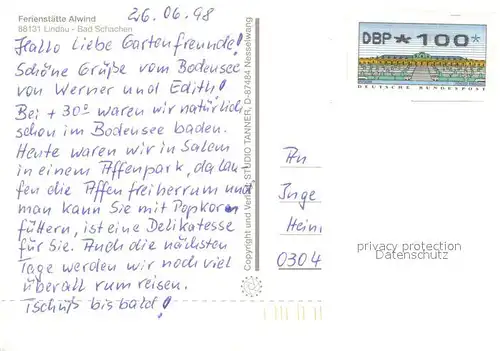 26.06.98
Ferienstätte Alwind
88131 Lindau - Bad Schachen
Hallo liebe Gartenfreunde!
Schöne Grüße vom Bodensee
von Werner und Edith!
Bei +30° waren wir natürlich
schon im Bodensee baden.
Heute waren wir in Salem
in einem Affenpark, da lau-
fen die Affen frei herrum und
man kann Sie mit Popkorn
füttern, ist eine Delikatesse
für Sie. Auch die nächsten
Tage werden wir noch viel
überall rum reisen.
Tschüß bis bald!
Copyright und Verlag: STUDIO TANNER, D-87484 Nesselwang
DBP * 100*
DEUTSCHE BUNDESPOST
An
Inge
Hein
0304
privacy protection
Datenschutz